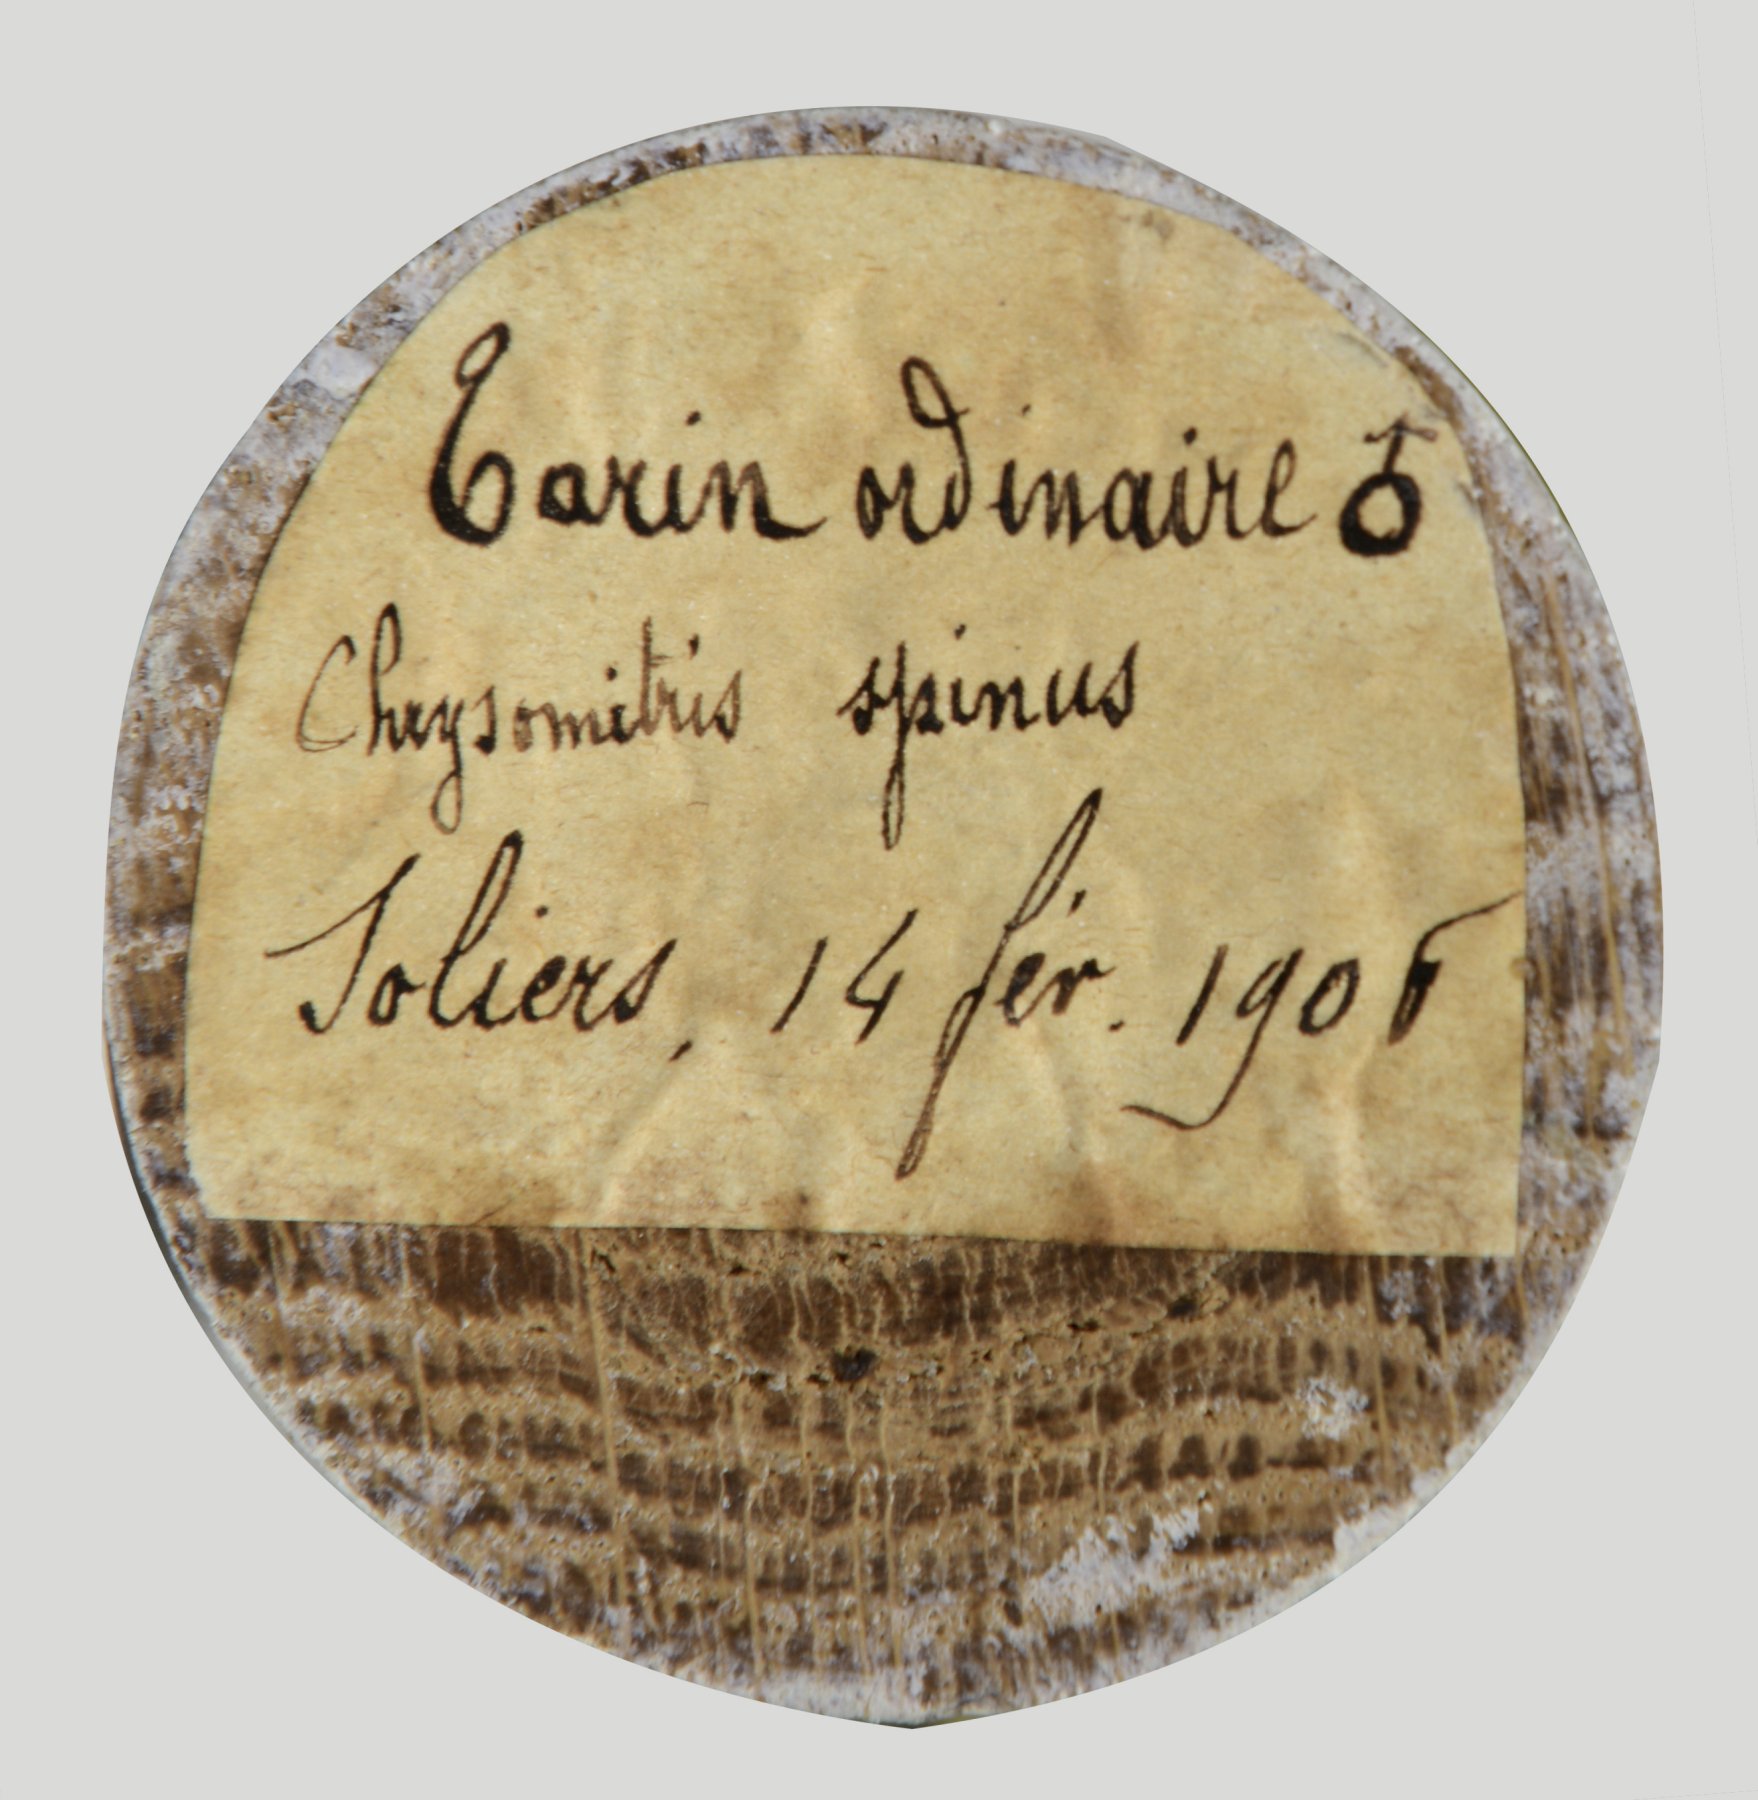 Tarin ordinaire ♂
Chrysomitris spinus
Soliers, 14 fév. 1905